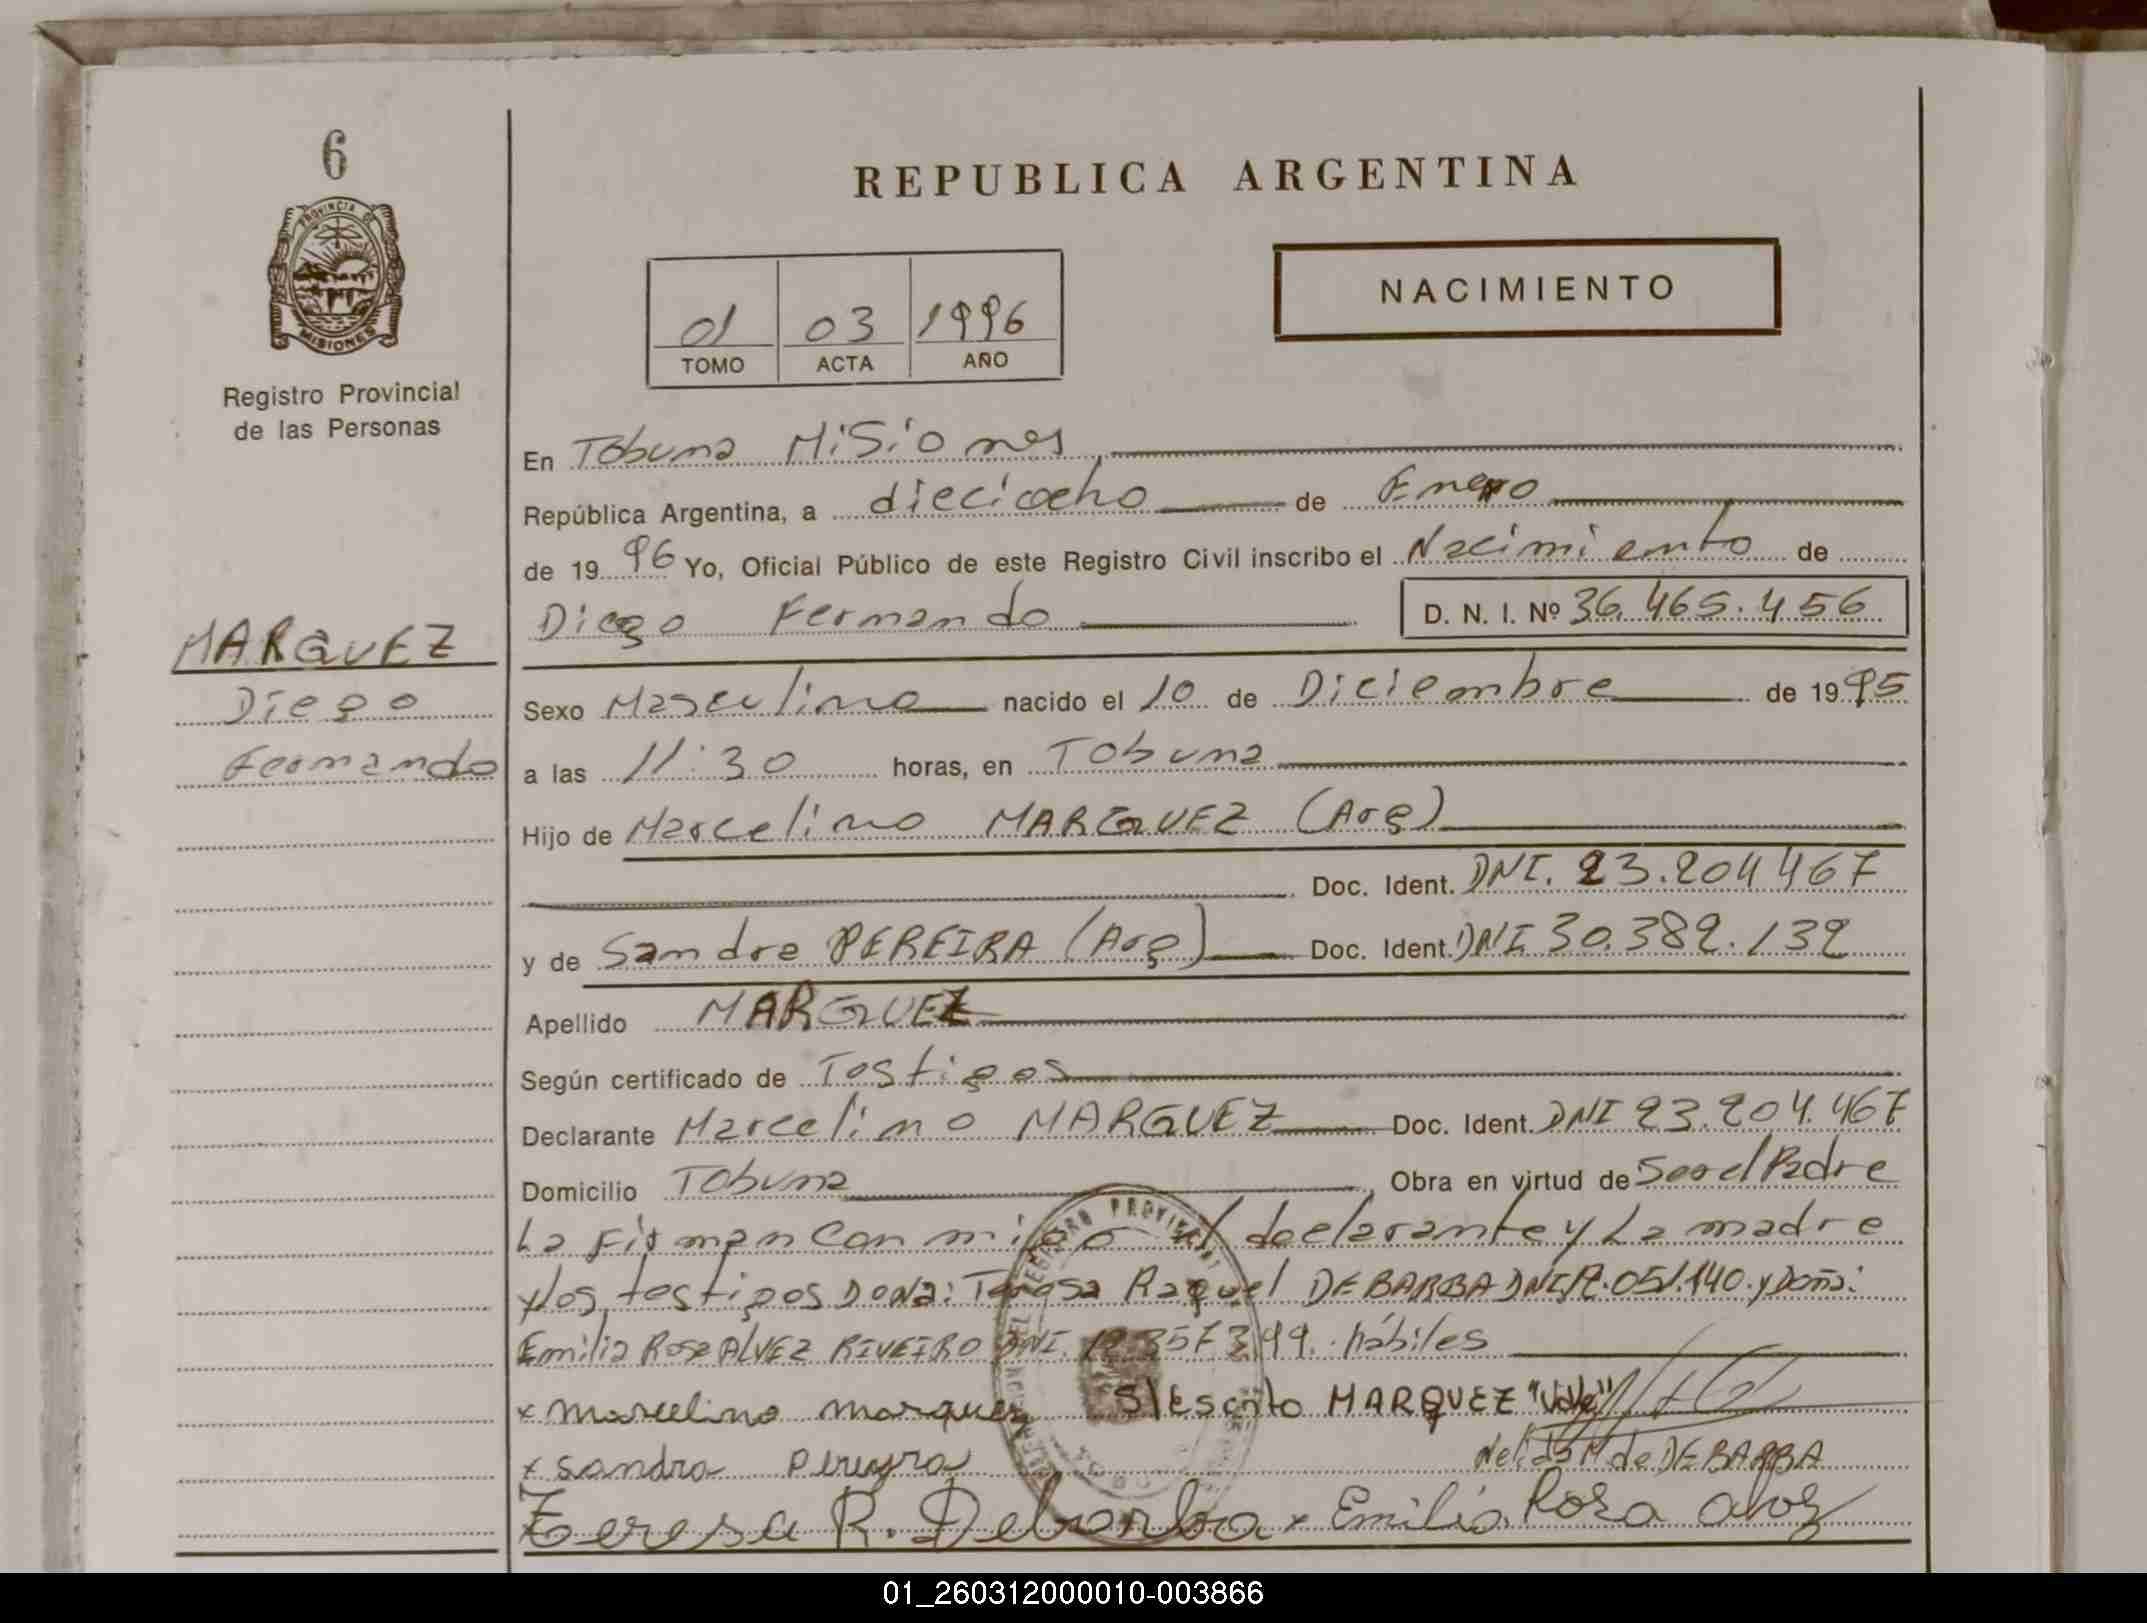 6
PROVINCIA DE
MISIONES
Registro Provincial
de las Personas
MARQUEZ
Diego
Fernando
REPUBLICA ARGENTINA
01 03 1996
TOMO ACTA AÑO
NACIMIENTO
En Tobuna Misiones,
República Argentina, a dieciocho de Enero
de 1996 Yo, Oficial Público de este Registro Civil inscribo el Nacimiento de
Diego Fernando D. N. I. Nº 36.465.456
Sexo Masculino nacido el 10 de Diciembre de 1995
a las 11:30 horas, en Tobuna
Hijo de Marcelino MARQUEZ (Arg)
Doc. Ident. DNI. 23.204 467
y de Sandra PEREIRA (Arg) Doc. Ident. DNI 30.382.132
Apellido MARQUEZ
Según certificado de Testigos
Declarante Marcelino MARQUEZ Doc. Ident. DNI 23.204.467
Domicilio Tobuna Obra en virtud de Ser el Padre
La Firman Conmigo el declarante y La madre
y los testigos DONA: Teresa Raquel DE BARBA DNI 051.140 y Doña:
Emilia Rosa ALVEZ RIVEIRO DNI. 357 399. hábiles
x marcelino marquez S/Escrito MARQUEZ "Vale"
x sandra pereyra Nelida M de DE BARBA
Teresa R. Debarba x Emilia Rosa alvez
REGISTRO PROVINCIAL
01_260312000010-003866